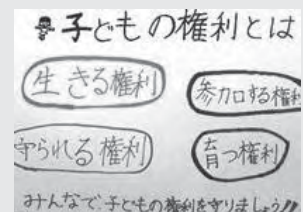 子どもの権利とは
生きる権利 参加する権利
守られる権利 育つ権利
みんなで、子どもの権利を守りましょう!!